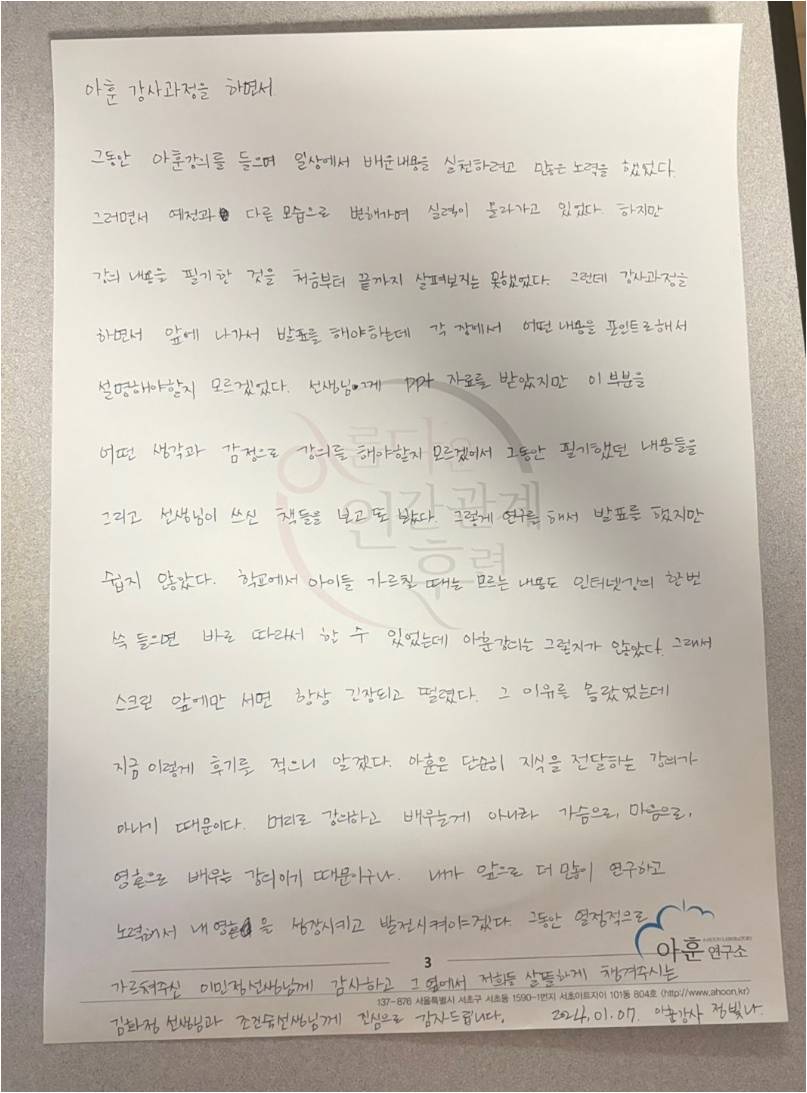 아훈 강사과정을 하면서
그동안 아훈강의를 들으며 일상에서 배운내용을 실천하려고 많은 노력을 했었다.
그러면서 예전과 다른 모습으로 변해가며 실력이 올라가고 있었다. 하지만
강의 내용을 필기한 것을 처음부터 끝까지 살펴보지는 못했었다. 그런데 강사과정을
하면서 앞에 나가서 발표를 해야하는데 각 장에서 어떤 내용을 포인트로해서
설명해야할지 모르겠었다. 선생님께 ppt 자료를 받았지만 이 부분을
어떤 생각과 감정으로 강의를 해야할지 모르겠어서 그동안 필기했던 내용들을
그리고 선생님이 쓰신 책들을 보고 또 봤다. 그렇게 연구를 해서 발표를 했지만
쉽지 않았다. 학교에서 아이들 가르칠 때는 모르는 내용도 인터넷강의 한번
쓱 들으면 바로 따라서 할 수 있었는데 아훈강의는 그렇지가 않았다. 그래서
스크린 앞에만 서면 항상 긴장되고 떨렸다. 그 이유를 몰랐었는데
지금 이렇게 후기를 적으니 알겠다. 아훈은 단순히 지식을 전달하는 강의가
아니기 때문이다. 머리로 강의하고 배우는게 아니라 가슴으로, 마음으로,
영혼으로 배우는 강의이기 때문이구나. 내가 앞으로 더 많이 연구하고
노력해서 내 영혼을 성장시키고 발전시켜야겠다. 그동안 열정적으로
가르쳐주신 이민정선생님께 감사하고 그 옆에서 저희를 살뜰하게 챙겨주시는
김화정 선생님과 선생님께 진심으로 감사드립니다. 2024. 01. 07. 아훈강사 정빛나
아름다운
인간관계
훈련
아훈 연구소
AHOON LABORATORY
3
137-876 서울특별시 서초구 서초동 1590-1번지 서초아트자이 101동 804호 (http://www.ahoon.kr)